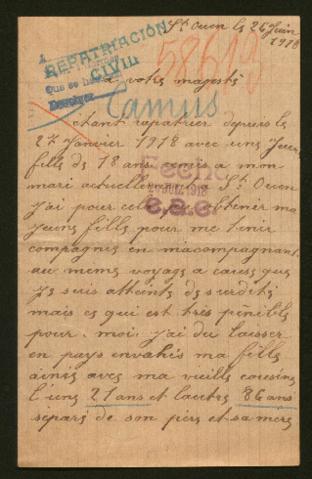 St Ouen le 26 Juin
1918
A
REPATRIACIÓN
CIVIL
Que se
58613
a votre majesté
Camus
étant rapatrier depuis le
27 Janvier 1918 avec une Jeune
fille de 18 ans remis a mon
mari actuellement a St Ouen
j'ai pour cela obtenir ma
jeune fille pour me tenir
compagnie en m'accompagnant
au meme voyage a cause que
je suis atteinte de surdité
mais ce qui est très pénible
pour moi j'ai du laisser
en pays envahis ma fille
ainée avec ma vieille cousine
l'une 27 ans et lautre 86 ans
séparé de son père et sa mère
Fecho
1918
C.a.C.